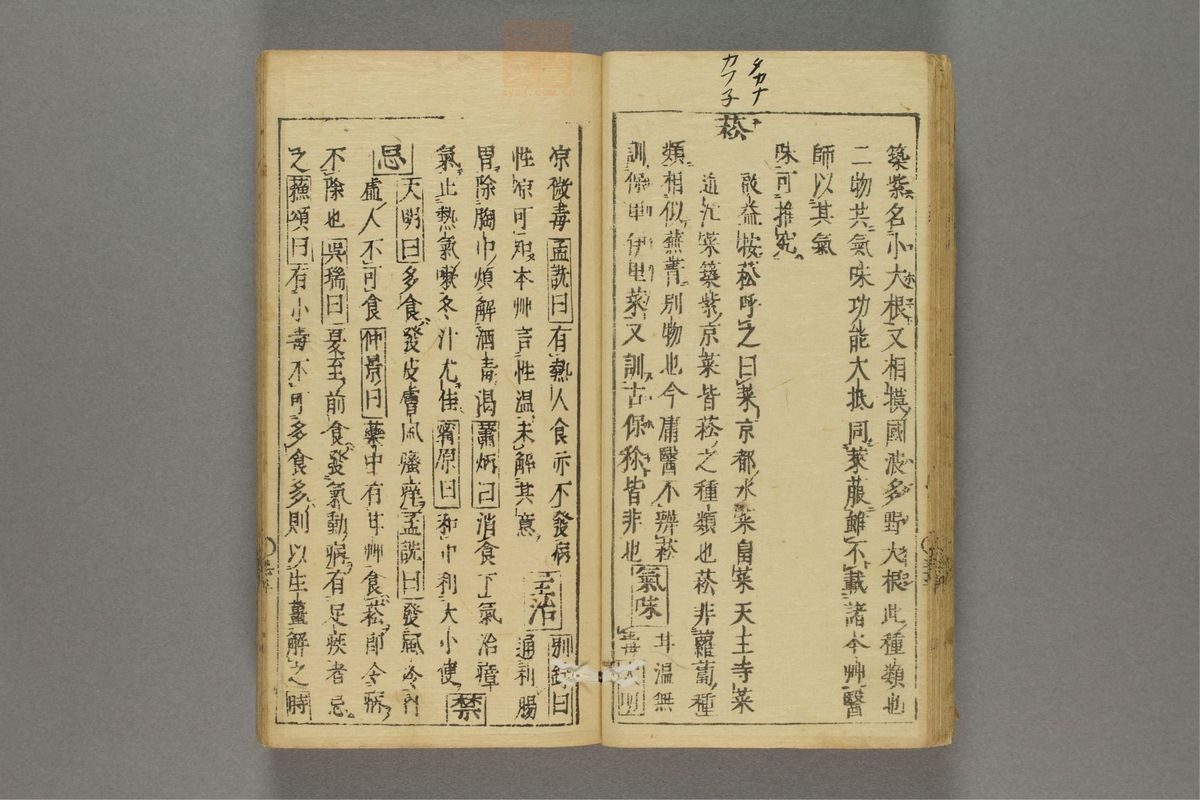 タカナ
カブ子
築紫名小大根又相摸國波多野大根此種類也
二物其氣味功能大抵同萊菔雖不載諸本艸醫
師以其氣
味可推究
菘
敬益按菘呼之曰菜京都水菜畠菜天王寺菜
近江菜築紫京菜皆菘之種類也菘非蘿蔔種
類相似蕪菁別物也今庸醫不辨菘
訓保申伊里菜又訓古保祢皆非也 氣味 甘温無
毒
凉微毒 孟詵曰 有熱人食亦不發病
性凉可 本艸言性温未解其意 主治 別錄曰 通利腸
胃除胸中煩解酒毒渴 蕭炳曰 消食下氣治瘴
氣止熱氣嗽冬汁尤佳 甯原曰 和中利大小便 禁
忌 大明曰 多食發皮膚風瘙痒 孟詵曰 發風冷
虛人不可食 仲景曰 藥中有甘艸食菘即令病
不除也 吳瑞曰 夏至前食發氣動病有足疾者忌
之 蘇頌曰 有小毒不可多食多則以生薑解之 時